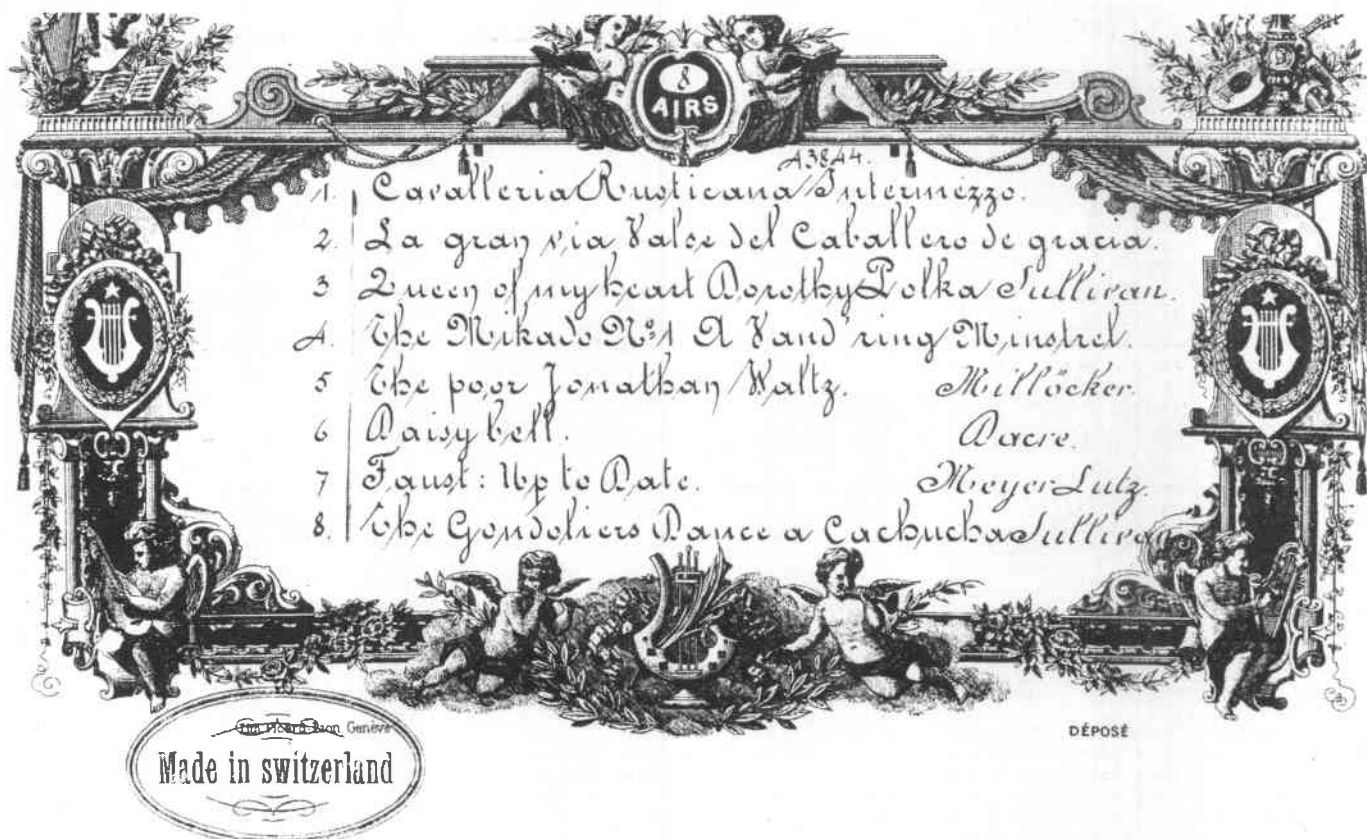 8
AIRS
A3844.
1. Cavalleria Rusticana Intermezzo.
2. La gran via Valse del Caballero de gracia.
3 Queen of my heart Dorothy Polka Sullivan.
4. The Mikado No. 1 A Vand'ring Minstrel.
5 The poor Jonathan Waltz. Millöcker.
6 Daisy bell. Dacre.
7 Faust: Up to Date. Meyer Lutz.
8. The Gondoliers Dance a Cachucha Sullivan
DÉPOSÉ
Genève
Made in switzerland